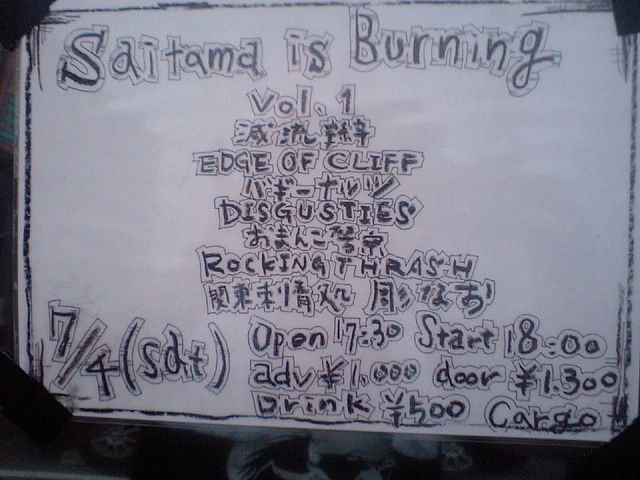 Saitama is Burning
Vol. 1
減流
EDGE OF CLIFF
バギーナルツ
DISGUSTIES
おまんこ
ROCKING THRASH
関東刺情処 周りなお
7/4 (sat) Open 17:30 Start 18:00
adv ¥1,000 door ¥1.300
Drink ¥500 Cargo